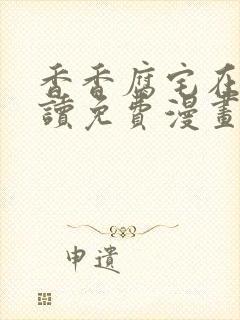 香香腐宅在
讀免費漫畫
申遺